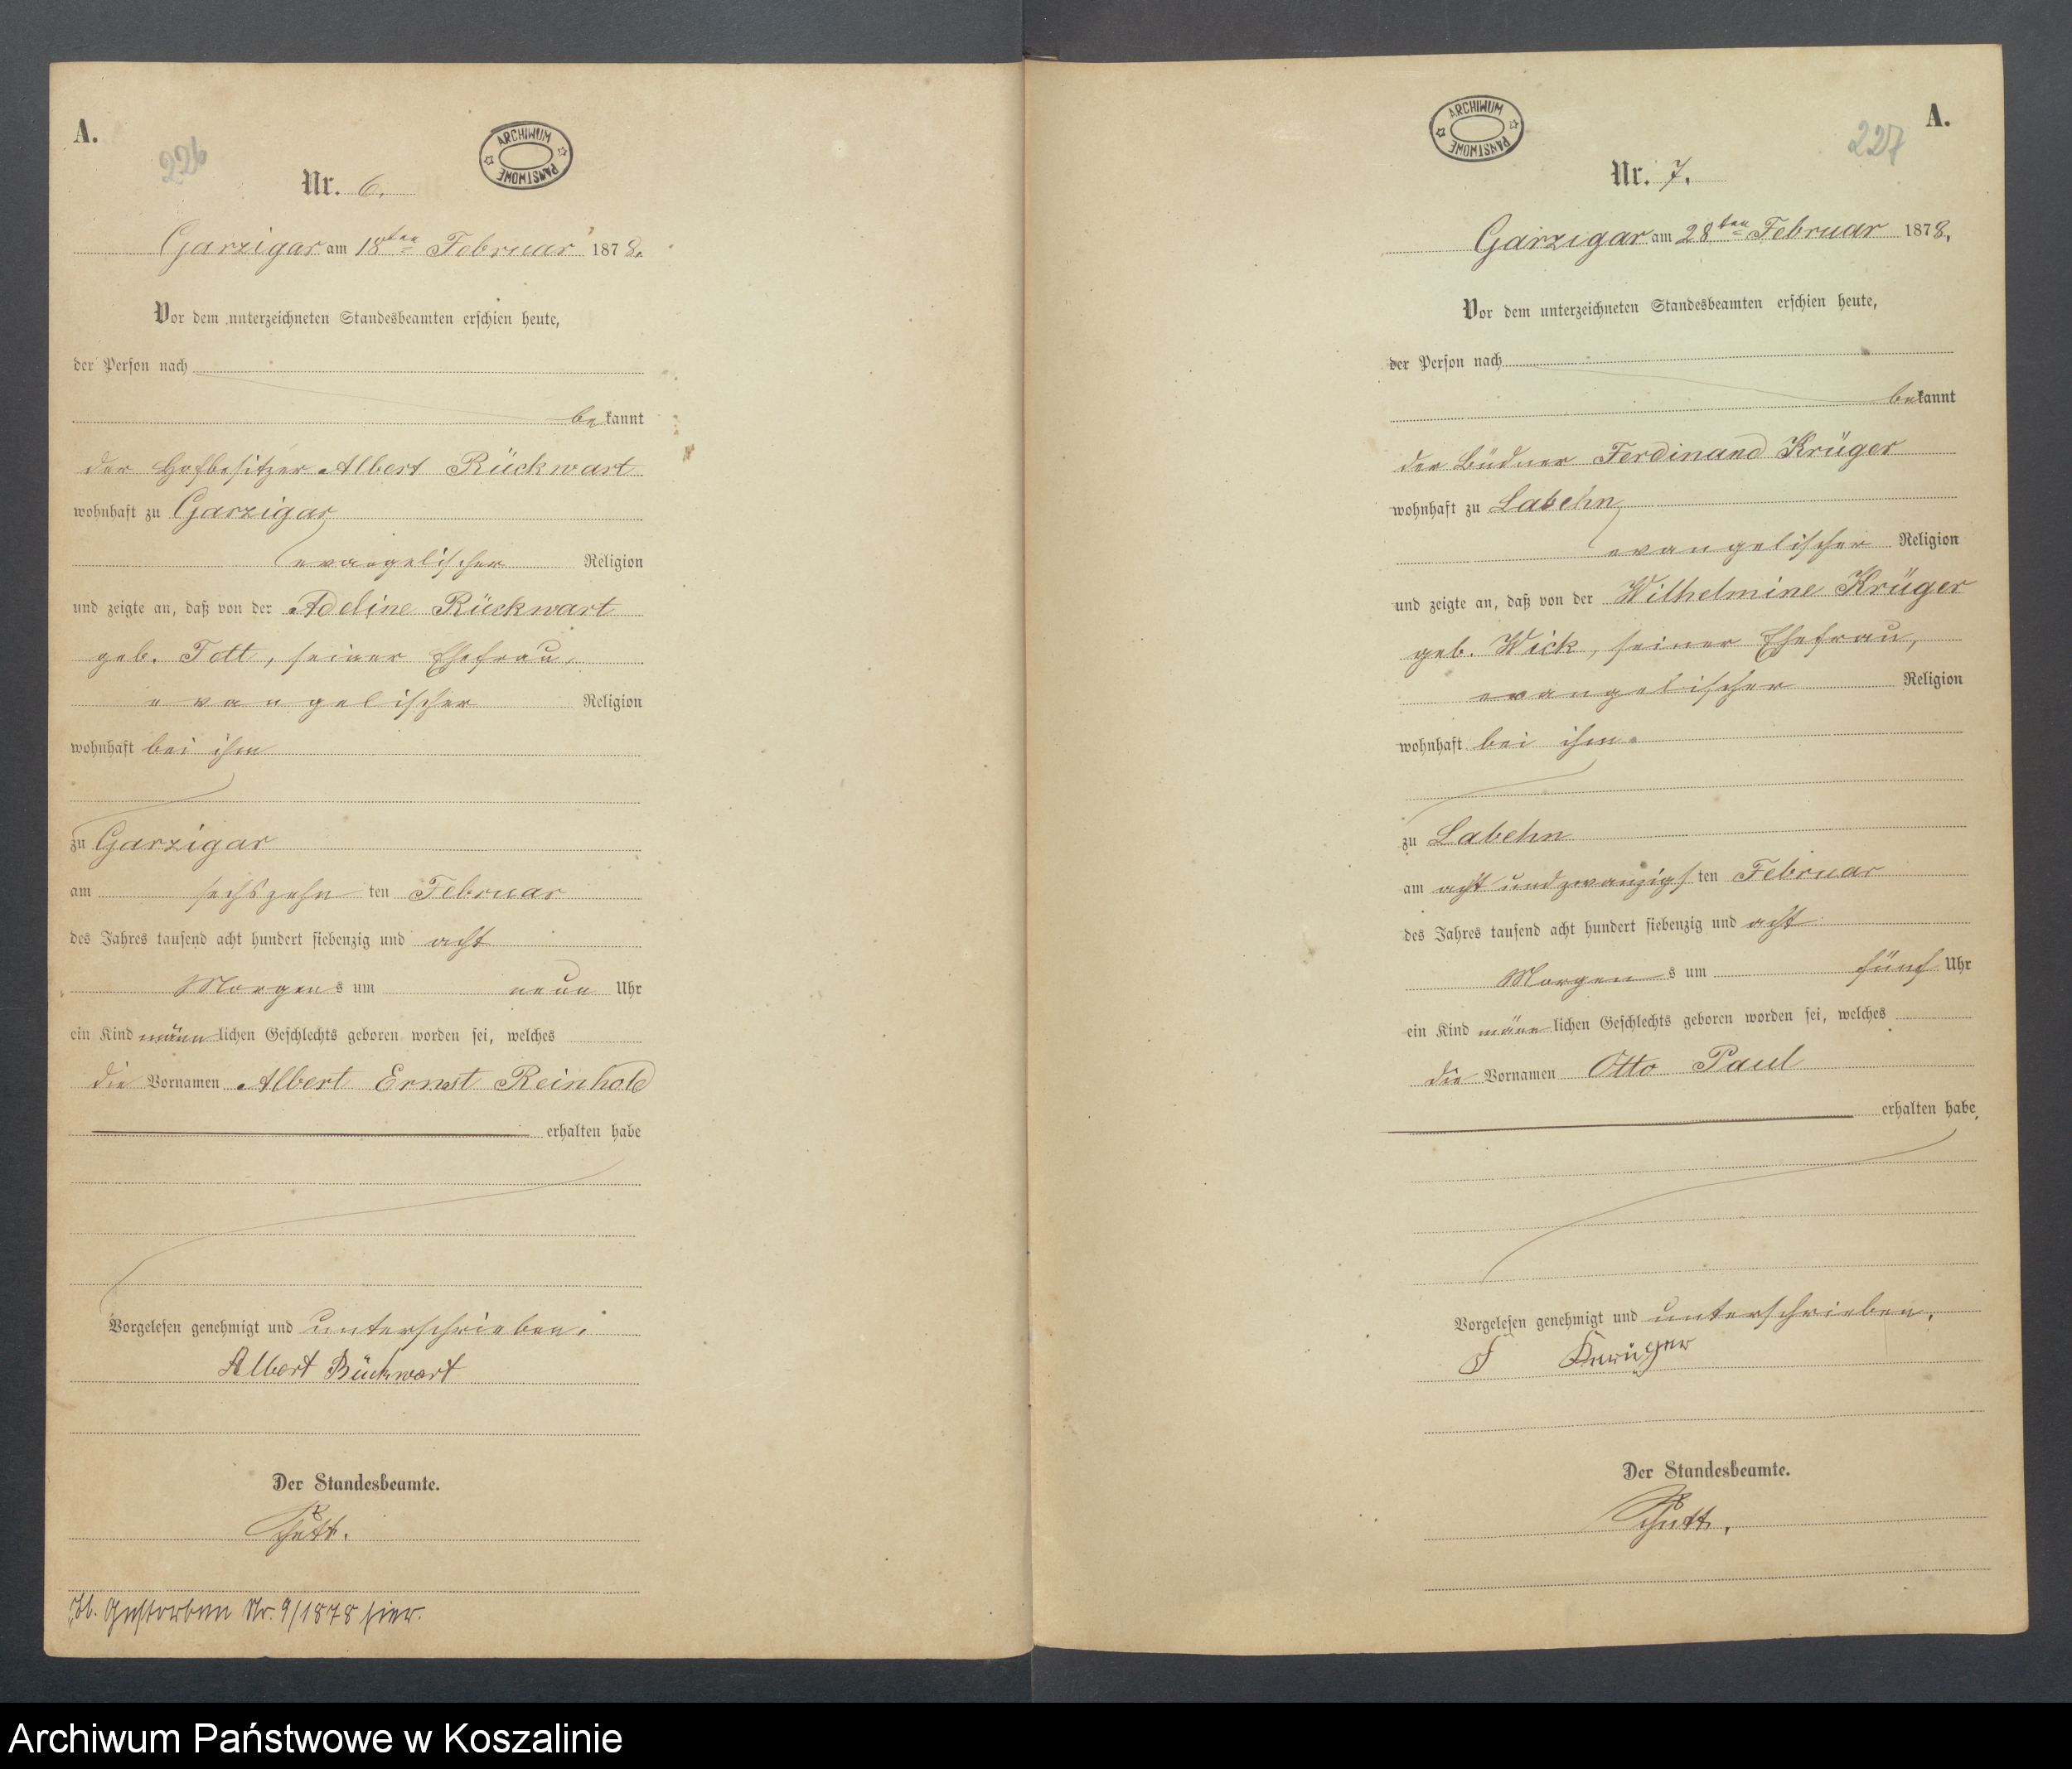 A.
226
ARCHIWUM PAŃSTWOWE
Nr. 6.
Garzigar am 18ten Februar 1878.
Vor dem unterzeichneten Standesbeamten erschien heute,
der Person nach
bekannt
der Hofbesitzer Albert Rückwart
wohnhaft zu Garzigar
evangelischer Religion
und zeigte an, daß von der Adeline Rückwart
geb. Tott, seiner Ehefrau,
evangelischer Religion
wohnhaft bei ihm
zu Garzigar
am sechszehnten Februar
des Jahres tausend acht hundert siebenzig und acht
Morgens um neun Uhr
ein Kind männlichen Geschlechts geboren worden sei, welches
die Vornamen Albert Ernst Reinhold
erhalten habe
Vorgelesen genehmigt und unterschrieben.
Albert Rückwart
Der Standesbeamte.
Gestorben Nr. 9/1878 hier.
A.
227
ARCHIWUM PAŃSTWOWE
Nr. 7.
Garzigar am 28ten Februar 1878.
Vor dem unterzeichneten Standesbeamten erschien heute,
der Person nach
bekannt
der Büdner Ferdinand Krüger
wohnhaft zu Labehn
evangelischer Religion
und zeigte an, daß von der Wilhelmine Krüger
geb. Wick, seiner Ehefrau,
evangelischer Religion
wohnhaft bei ihm
zu Labehn
am acht und zwanzigsten Februar
des Jahres tausend acht hundert siebenzig und acht
Morgens um fünf Uhr
ein Kind männlichen Geschlechts geboren worden sei, welches
die Vornamen Otto Paul
erhalten habe.
Vorgelesen genehmigt und unterschrieben.
F Krüger
Der Standesbeamte.
Archiwum Państwowe w Koszalinie